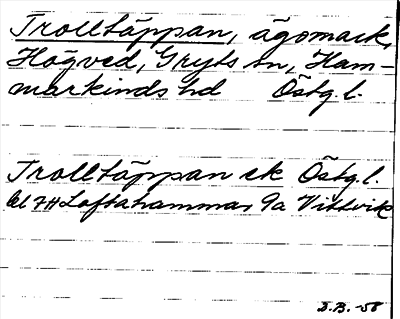 Trolltäppan, ägomark,
Högved, Gryts sn, Ham-
markinds hd Östg.l.
Trolltäppan ek Östg.l.
bl 7H Loftahammar 9a Vittvik
D.B. -58